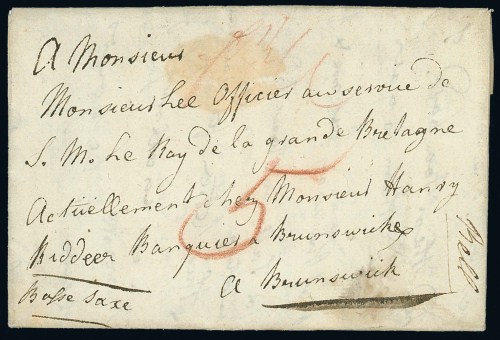 A Monsieur
Monsieur Lee Officier au service de
S. M. Le Roy de la grande Bretagne
Actuellement chez Monsieur Hanry
Biddeer Banquier a Brunswicke
a Brunswick
Basse Saxe
5